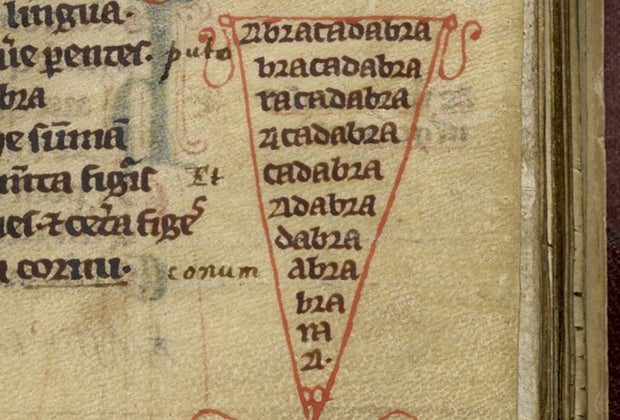 lingua.
ūe petentes. puto
bra
e sūmā
mīta figis Et
uel. ⁊ cet̄a fige s
cornu. conum
Abracadabra
bracadabra
racadabra
acadabra
cadabra
Adabra
dabra
abra
bra
ra
a.